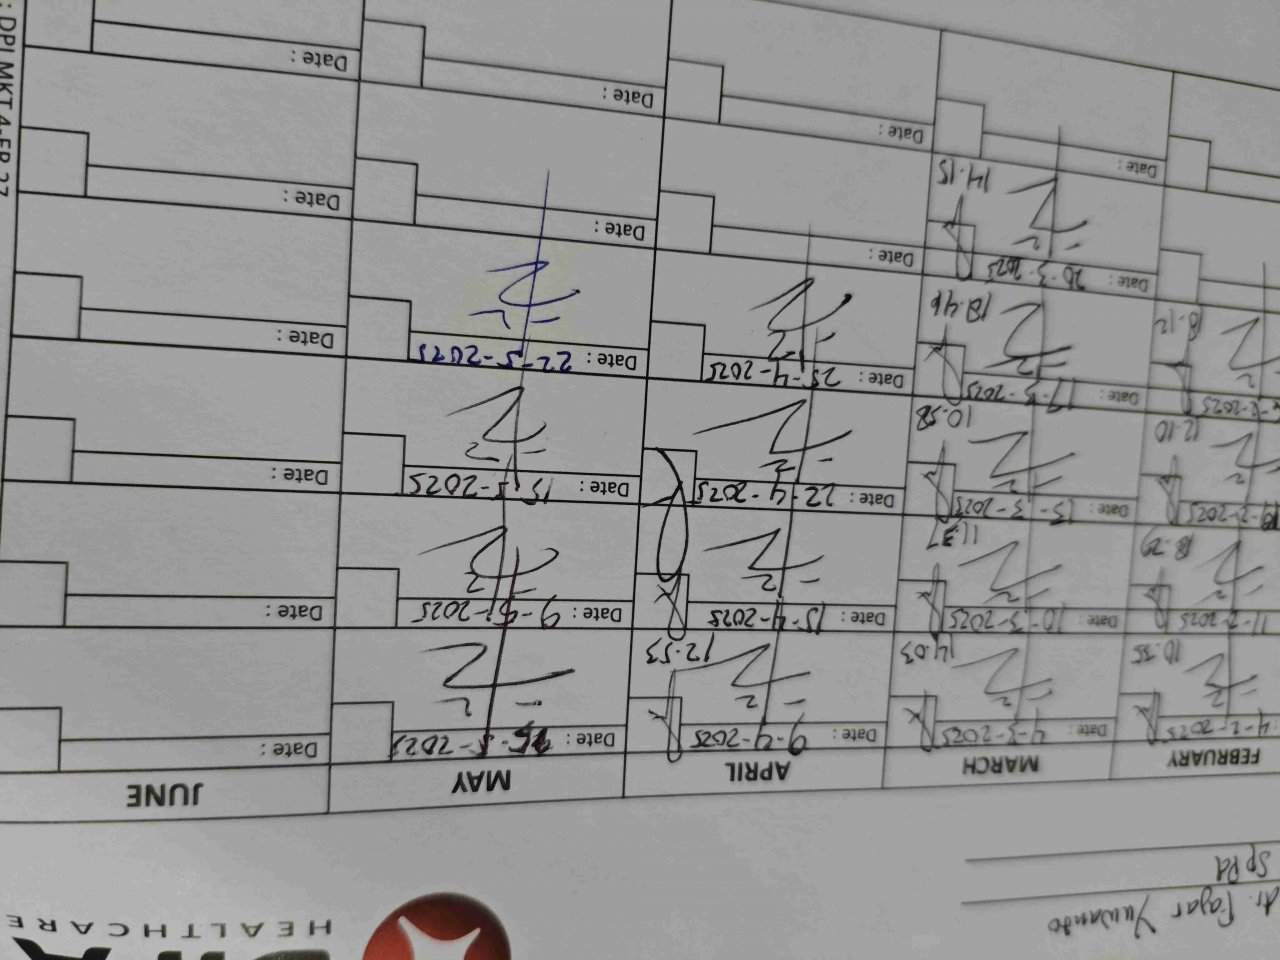 HEALTHCARE
dr. Fajar Yuwanto
SpPd
FEBRUARY MARCH APRIL MAY JUNE
4-2-2025 Date: 4-3-2025 Date: 9-4-2025 Date: 5-2025 Date:
10.35 14.03 12.53
11-2-2025 Date: 10-3-2025 Date: 15-4-2025 Date: 9-5-2025 Date:
11.37
2-2025 Date: 13-3-2025 Date: 22-4-2025 Date: 15-5-2025 Date:
12.10 10.58
2-2025 Date: 17-3-2025 Date: 25-4-2025 Date: 22-5-2025 Date:
18.12 18.46
Date: 20-3-2025 Date: Date: Date:
14.15
Date: Date: Date: Date:
: DPI MKT 4-FR 27